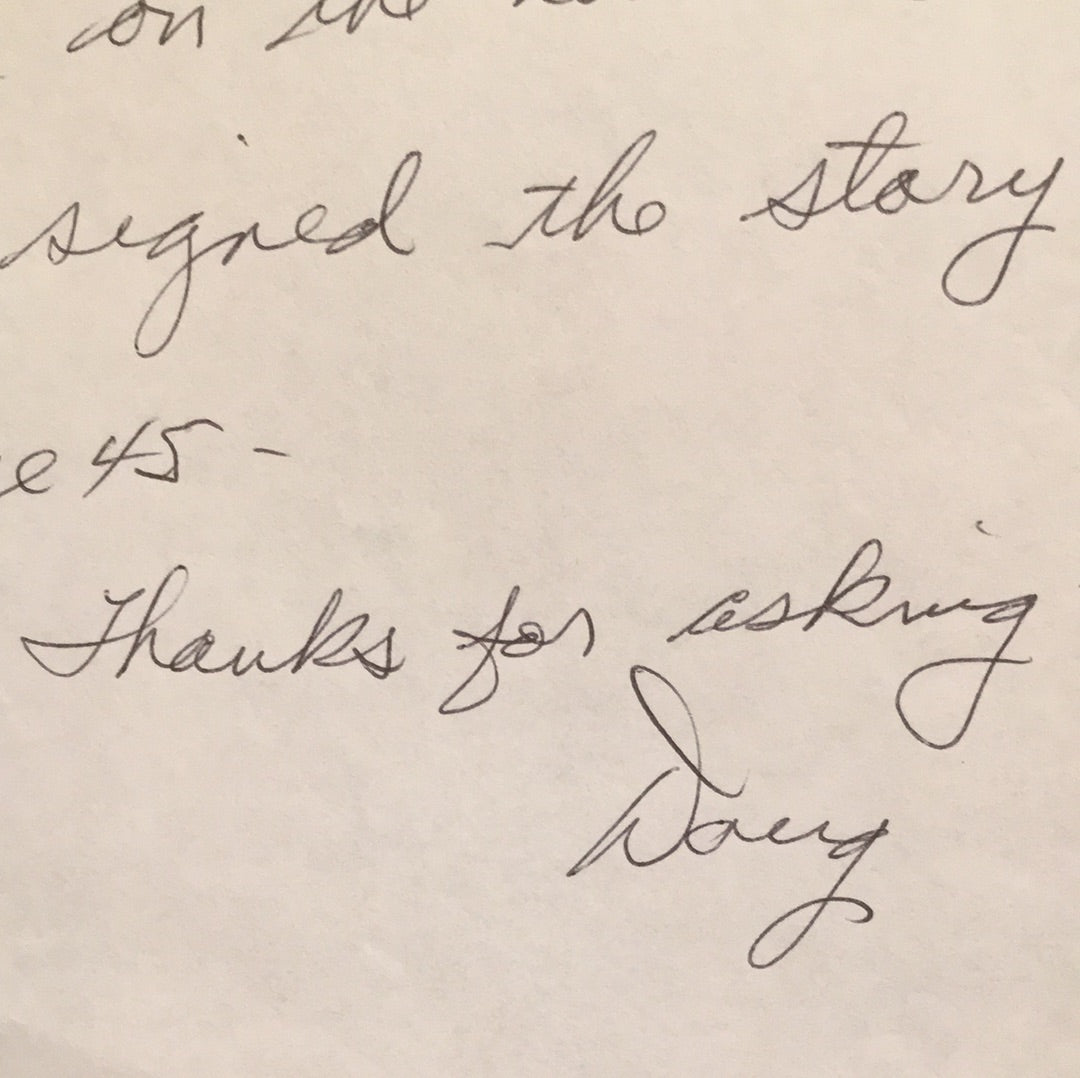 on the
signed the story
e 45 -
Thanks for asking
Doug